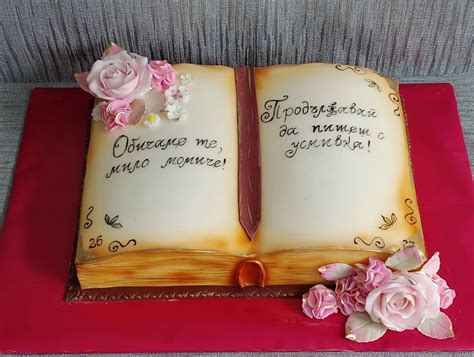 Обичаме те,
мило момиче!
26
Продължавай
да пишеш с
усмивка!
27